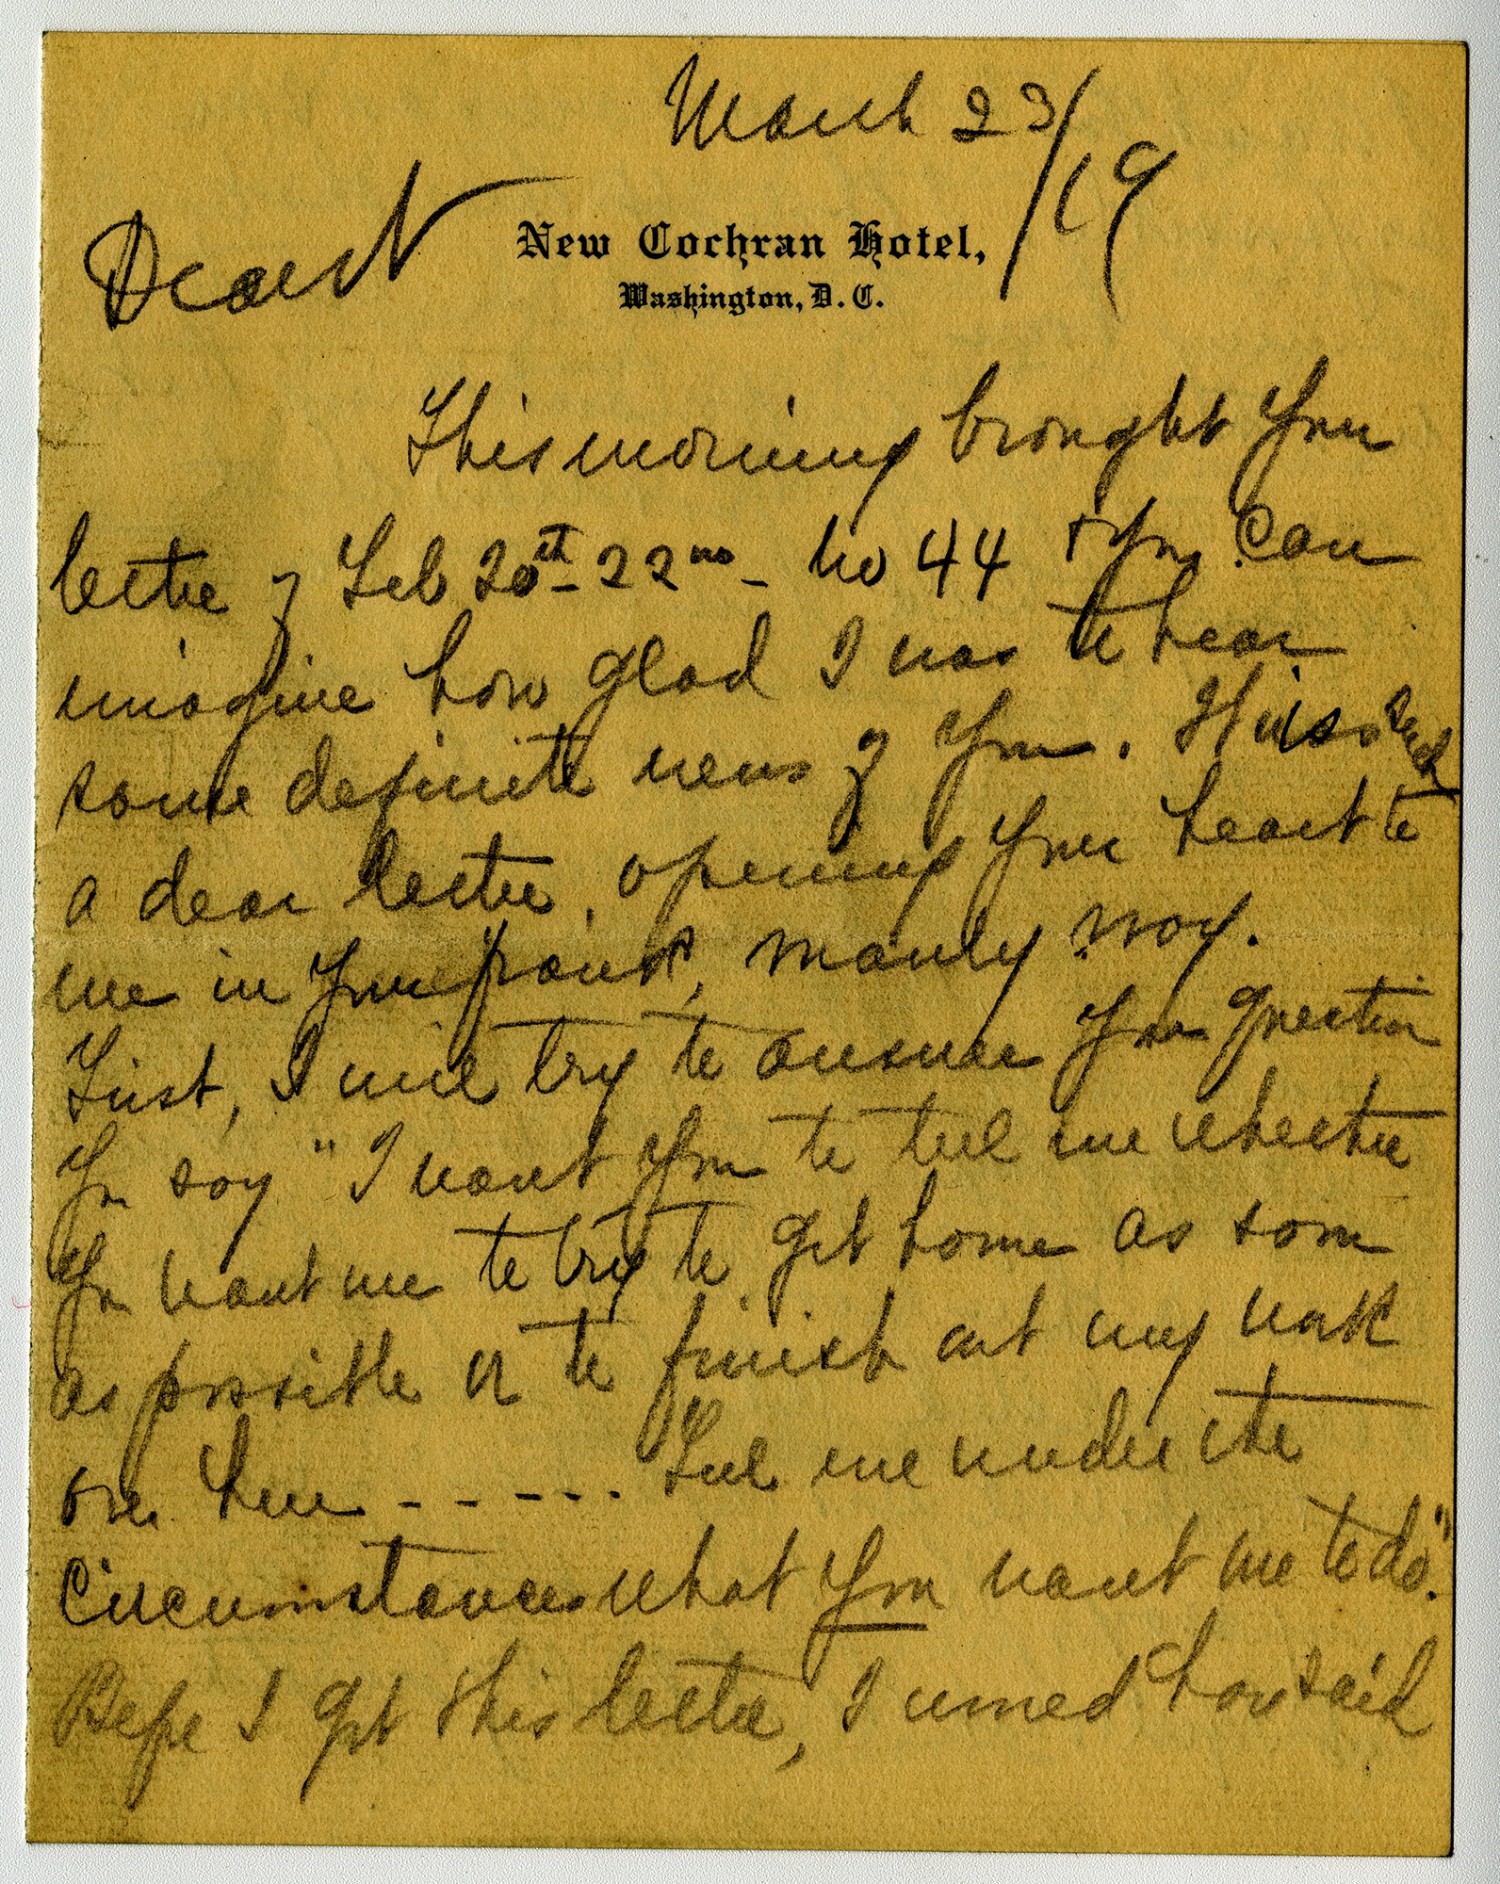 March 23/19
New Cochran Hotel,
Washington, D. C.
Dearest
This morning brought your
letter of Feb 20th - 22nd - no 44 & you can
imagine how glad I was to hear
some definite news of you. It is such
a dear letter, opening your heart to
me in your frank, manly way.
First, I will try to answer your question
You say "I want you to tell me whether
you want me to try to get home as soon
as possible or to finish out my work
over here - - - - - . Tell me under the
circumstances what you want me to do."
Before I got this letter, I would have said